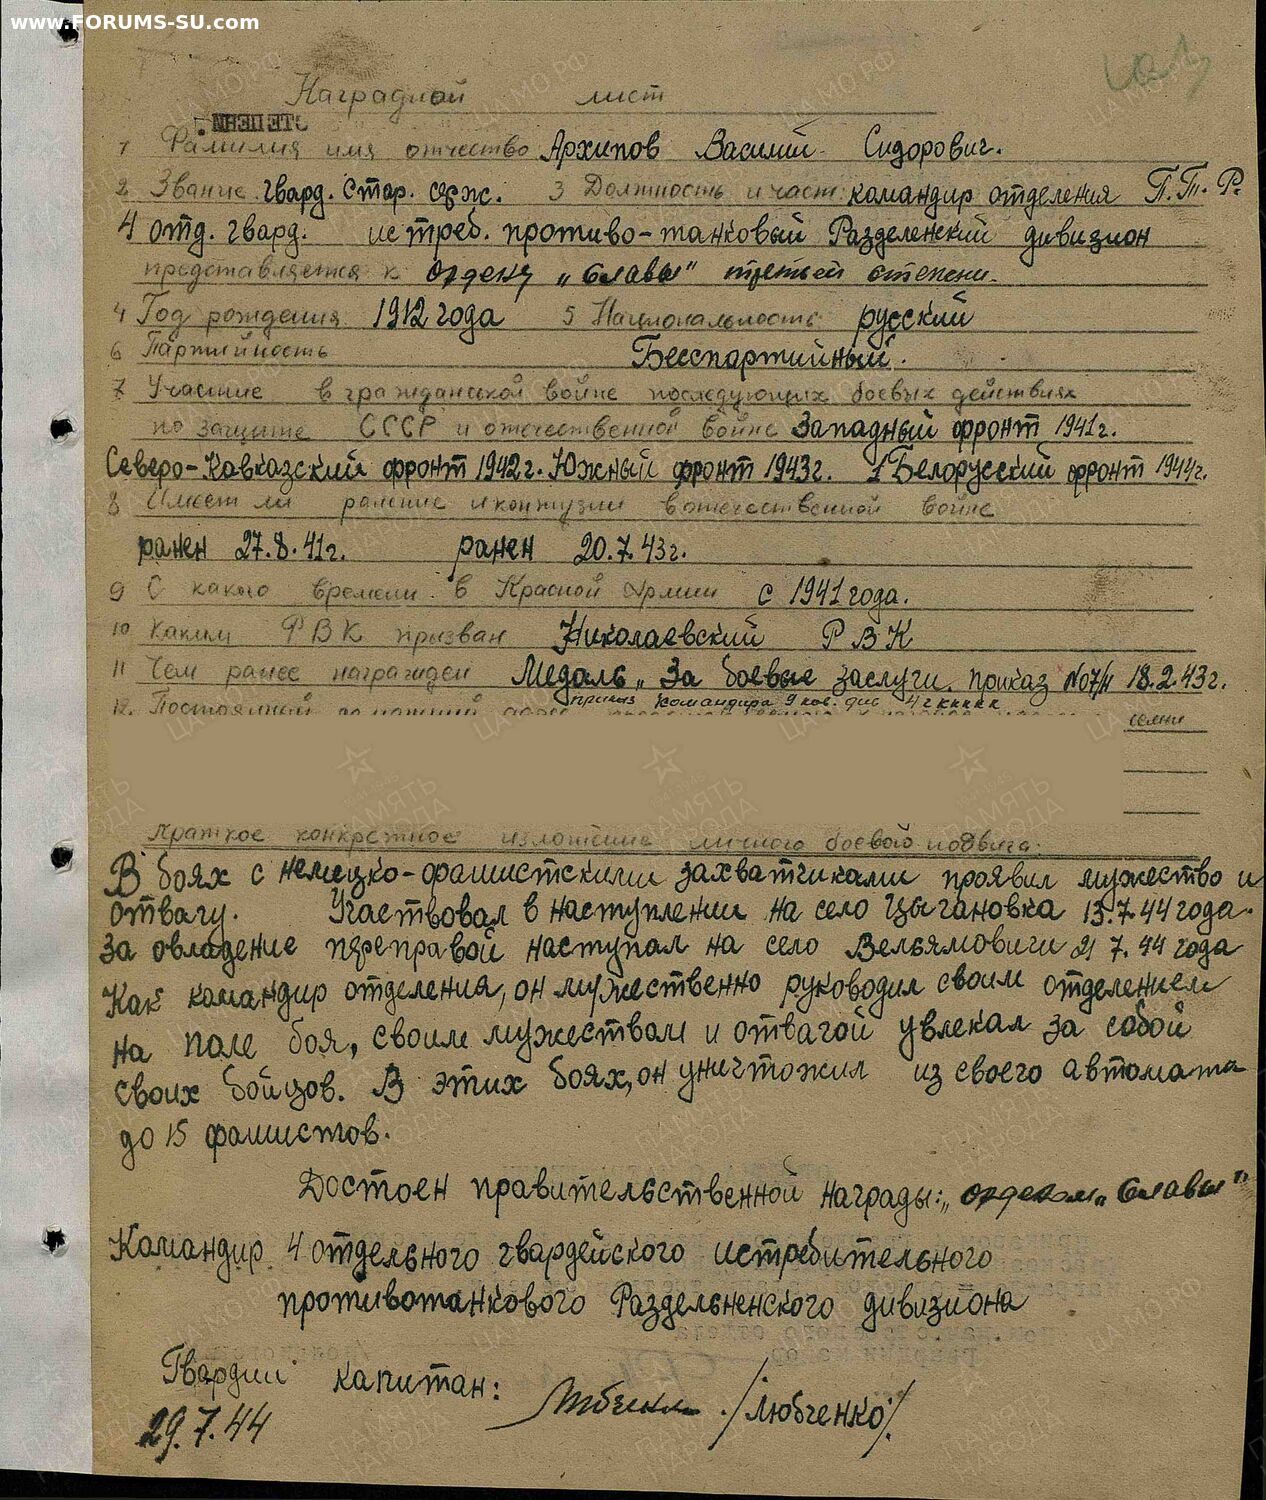 www.FORUMS-SU.com
Наградной лист
1 Фамилия имя отчество Архипов Василий Сидорович.
2 Звание гвард. Стар. серж. 3 Должность и част командир отделения П.Т.Р.
4 отд. гвард. истреб. противо-танковый Разделенский дивизион
представляется к ордену „Славы" третьей степени.
4 Год рождения 1912 года 5 Национальность русский
6 Партийность Бесспартийный.
7 Участие в гражданской войне последующих боевых действиях
по защите СССР и отечественной войне Западный фронт 1941г.
Северо-Кавказский фронт 1942г. Южный фронт 1943г. 1 Белорусский фронт 1944г.
8 Имеет ли ранение и контузии в отечественной войне
ранен 27.8.41г. ранен 20.7.43г.
9 С какого времени в Красной Армии с 1941 года.
10 Каким РВК призван Николаевский РВК
11 Чем ранее награжден Медаль „За боевые заслуги. приказ №07/н 18.2.43г.
приказ командира 9 кав. див 4 гккккк
12. Постоянный домашний адрес
семьи
Краткое конкретное изложение личного боевого подвига.
В боях с немецко-фашистскими захватчиками проявил мужество и
отвагу. Участвовал в наступлении на село Цыгановка 13.7.44 года.
За овладение переправой наступал на село Вельямовичи 21 7.44 года
Как командир отделения, он мужественно руководил своим отделением
на поле боя, своим мужеством и отвагой увлекал за собой
своих бойцов. В этих боях, он уничтожил из своего автомата
до 15 фашистов.
Достоен правительственной награды: „орденом „Славы"
Командир 4 отдельного гвардейского истребительного
противотанкового Раздельненского дивизиона
Гвардии капитан: /Любченко/.
29.7.44